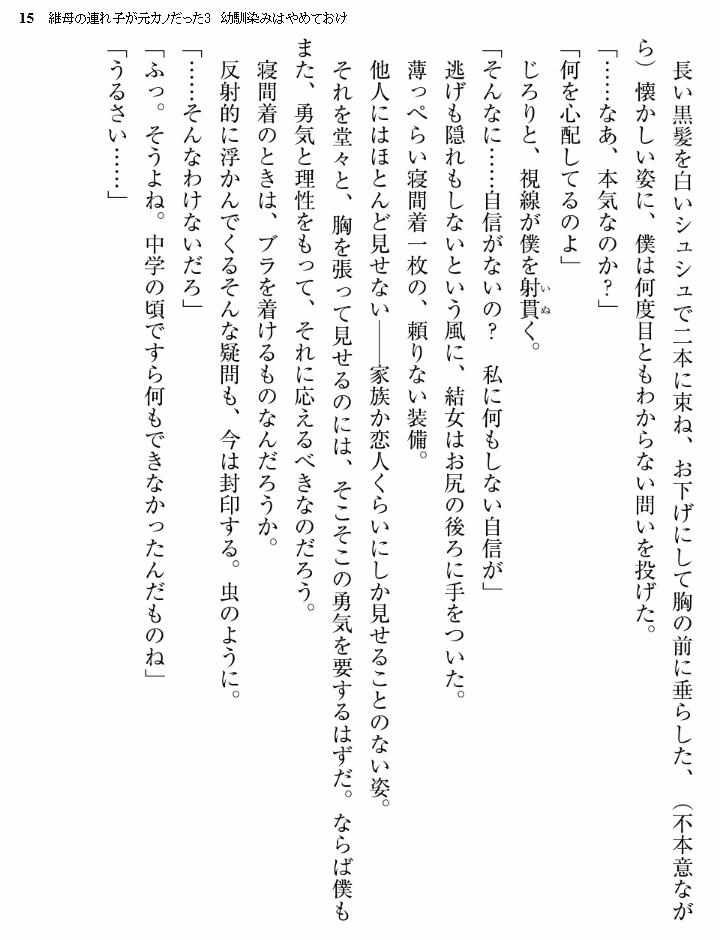 15 継母の連れ子が元カノだった3 幼馴染みはやめておけ
長い黒髪を白いシュシュで二本に束ね、お下げにして胸の前に垂らした、（不本意なが
ら）懐かしい姿に、僕は何度目ともわからない問いを投げた。
「……なあ、本気なのか？」
「何を心配してるのよ」
じろりと、視線が僕を射貫く。
いぬ
「そんなに……自信がないの？　私に何もしない自信が」
逃げも隠れもしないという風に、結女はお尻の後ろに手をついた。
薄っぺらい寝間着一枚の、頼りない装備。
他人にはほとんど見せない――家族か恋人くらいにしか見せることのない姿。
それを堂々と、胸を張って見せるのには、そこそこの勇気を要するはずだ。ならば僕も
また、勇気と理性をもって、それに応えるべきなのだろう。
寝間着のときは、ブラを着けるものなんだろうか。
反射的に浮かんでくるそんな疑問も、今は封印する。虫のように。
「……そんなわけないだろ」
「ふっ。そうよね。中学の頃ですら何もできなかったんだものね」
「うるさい……」